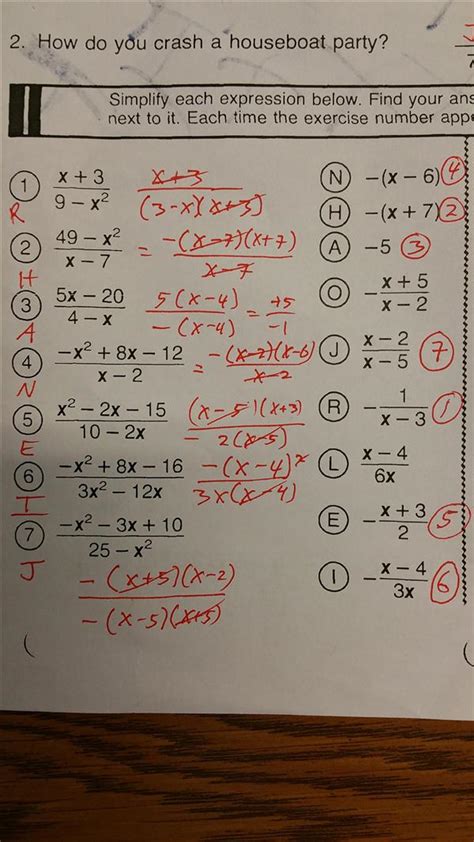 2. How do you crash a houseboat party?
Simplify each expression below. Find your ans
next to it. Each time the exercise number appe
1 (x + 3)/(9 − x²) (x+3)/((3−x)(x+3))
R
2 (49 − x²)/(x − 7) = −(x−7)(x+7)/(x−7)
H
3 (5x − 20)/(4 − x) 5(x−4)/−(x−4) = +5/−1
A
4 (−x² + 8x − 12)/(x − 2) = −(x−2)(x−6)/(x−2)
N
5 (x² − 2x − 15)/(10 − 2x) (x−5)(x+3)/−2(x−5)
E
6 (−x² + 8x − 16)/(3x² − 12x) −(x−4)²/3x(x−4)
I
7 (−x² − 3x + 10)/(25 − x²)
J
−(x+5)(x−2)/−(x−5)(x+5)
N −(x − 6) 4
H −(x + 7) 2
A −5 3
O −(x + 5)/(x − 2)
J (x − 2)/(x − 5) 7
R −1/(x − 3) 1
L (x − 4)/6x
E −(x + 3)/2 5
I −(x − 4)/3x 6